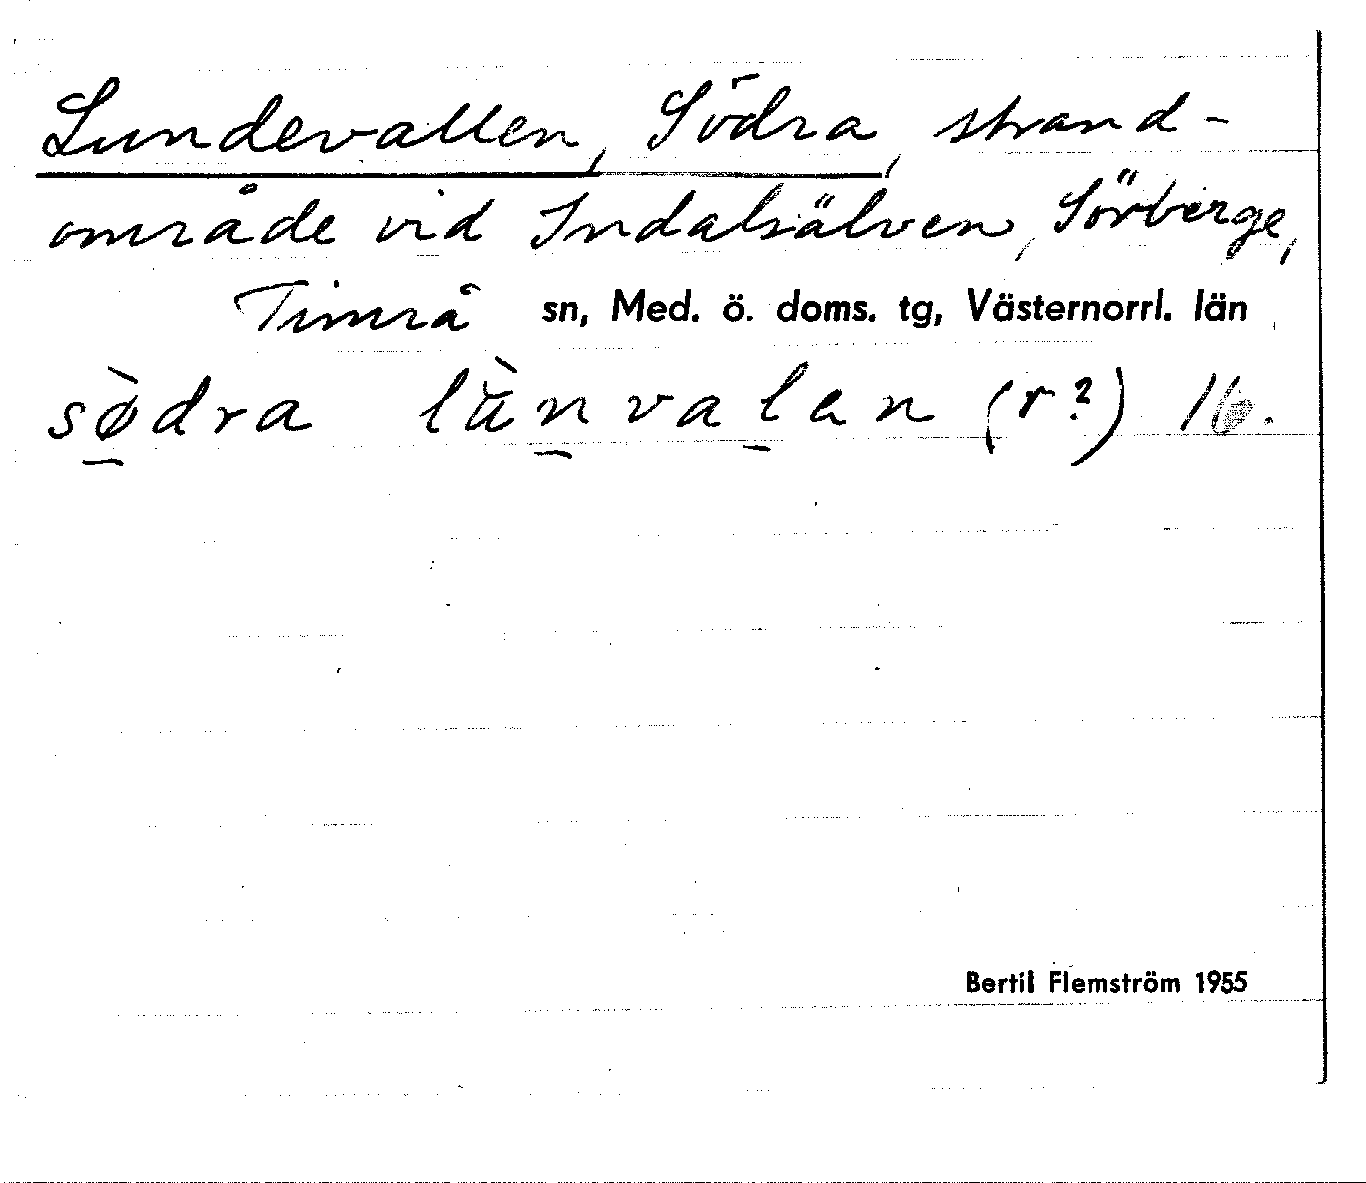 Lundevallen, Södra, strand-
område vid Indalsälven, Sörberge,
Timrå sn, Med. ö. doms. tg, Västernorrl. län
sø̀dra lǜnvalan (r?)
Bertil Flemström 1955